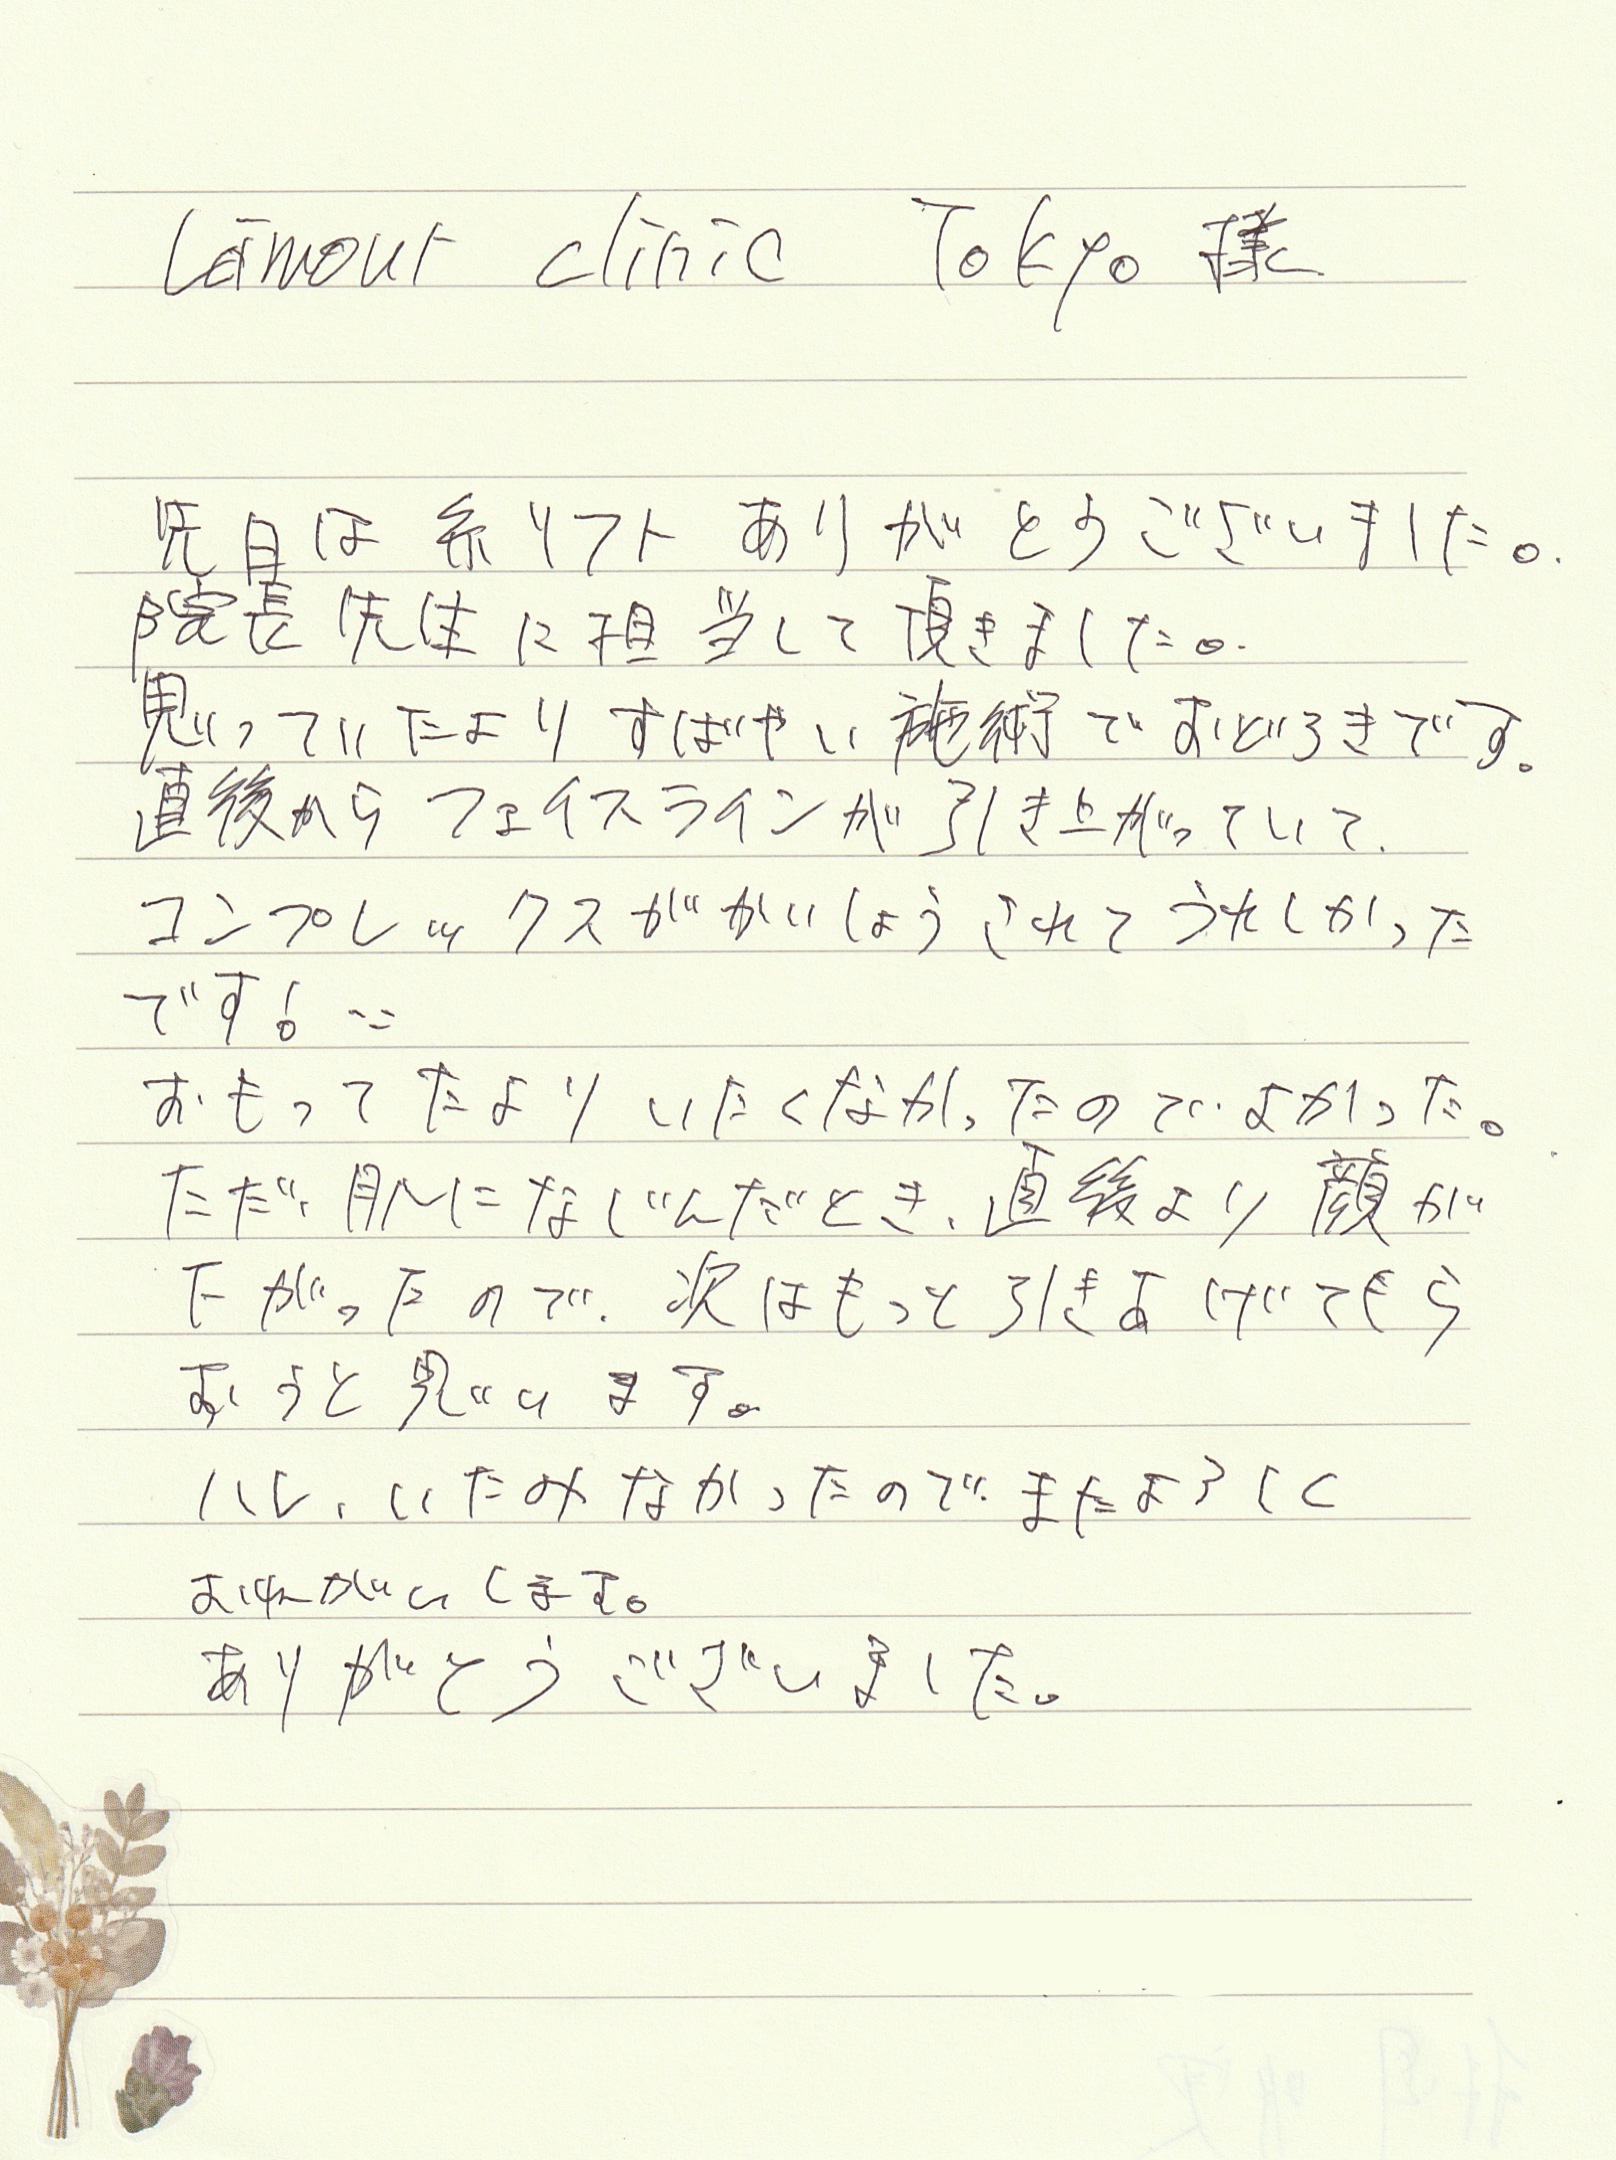 Lamour clinic Tokyo 様
先日は 糸リフト ありがとうございました。
院長先生に担当して頂きました。
思っていたより すばやい施術でおどろきです。
直後から フェイスラインが引き上がっていて、
コンプレックスがかいしょうされてうれしかった
です!
おもってたより いたくなかったので、よかった。
ただ、肌になじんだとき、直後より 顔が
下がったので、次はもっと引きあげてもら
おうと思います。
ハレ、いたみなかったので、またよろしく
おねがいします。
ありがとうございました。